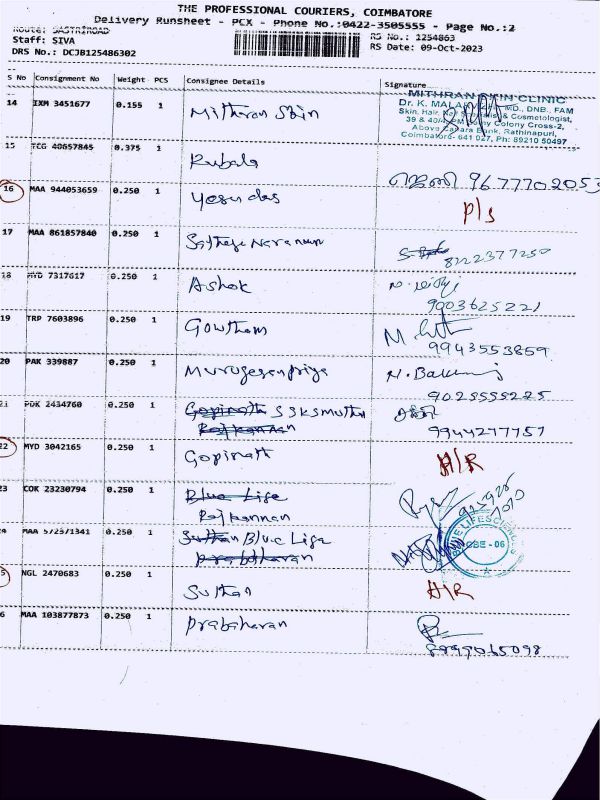 THE PROFESSIONAL COURIERS, COIMBATORE
Delivery Runsheet - PCX - Phone No.:0422-3505555 - Page No.:2
Route: SASTRIROAD RS No.: 1254863
Staff: SIVA RS Date: 09-Oct-2023
DRS No.: DCJB125486302
S No Consignment No Weight PCS Consignee Details Signature
14 IXM 3451677 0.155 1 Mithran Skin
MITHRAN SKIN CLINIC
Dr. K. MD., DNB., FAM
Skin, Hair, & Cosmetologist,
Colony Cross-2,
Above Canara Bank, Rathinapuri,
Coimbatore- 641 027, Ph: 89210 50497
15 TCG 40657845 0.375 1 Kubala
9677702053
16 MAA 944053659 0.250 1 Yesudas P/S
17 MAA 861857840 0.250 1
8222377250
18 MYD 7317617 0.250 1 Ashok
9003625221
19 TRP 7603896 0.250 1 Gowtham
9943553859
20 PAK 339887 0.250 1 Murugesanpriya
9025555225
21 PDK 2434760 0.250 1 Gopinath SSKSMuthu
Rajkannan 9944277757
22 MYD 3042165 0.250 1 Gopinath H/R
23 COK 23230794 0.250 1 Blue Lige
Rajkannan
24 MAA 572571341 0.250 1 Suthan Blue Lige
Prabaharan
CBE - 06
25 NGL 2470683 0.250 1 Suthan H/R
26 MAA 103877873 0.250 1 Prabaharan
8899065098